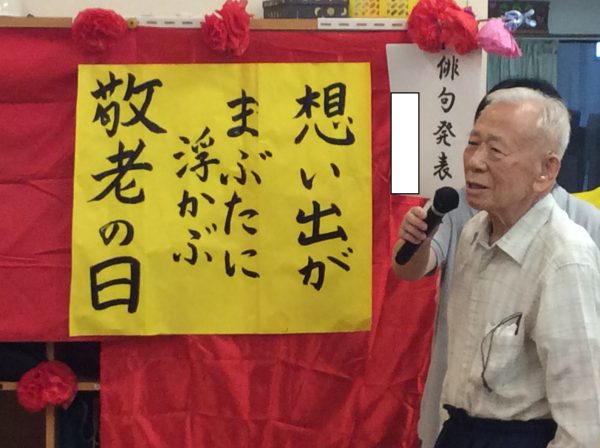 俳句発表
想い出が
まぶたに
浮かぶ
敬老の日